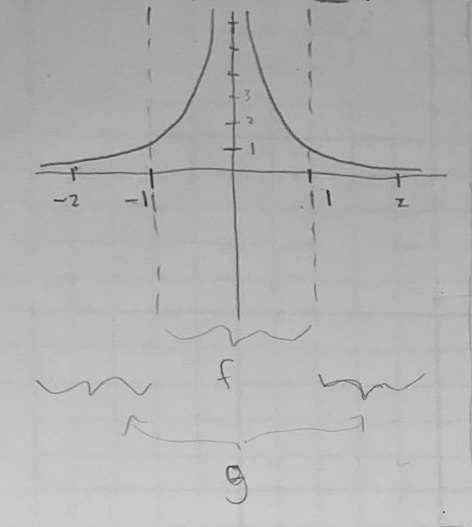 3
2
1
-2 -1 1 2
f
g